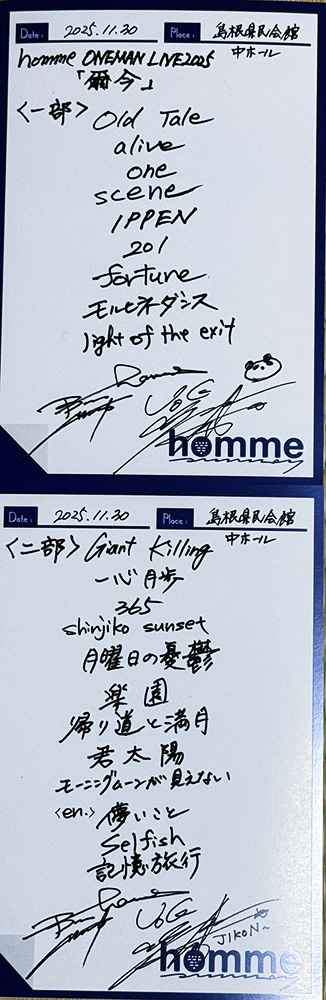 Date: 2025.11.30 Place: 島根県民会館
中ホール
homme ONEMAN LIVE2025
「爾今」
<一部> Old Tale
alive
one
scene
IPPEN
201
fortune
モルヒネダンス
light of the exit
homme
Date: 2025.11.30 Place: 島根県民会館
中ホール
<二部> Giant Killing
一心月歩
365
shinjiko sunset
月曜日の憂鬱
楽園
帰り道と満月
君太陽
モーニングムーンが見えない
<en.> 儚いこと
Selfish
記憶旅行
JIKON~
homme